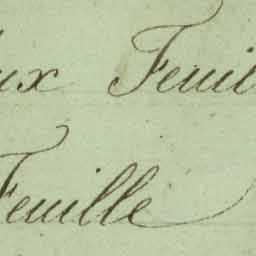 ux Feuil
Feuille